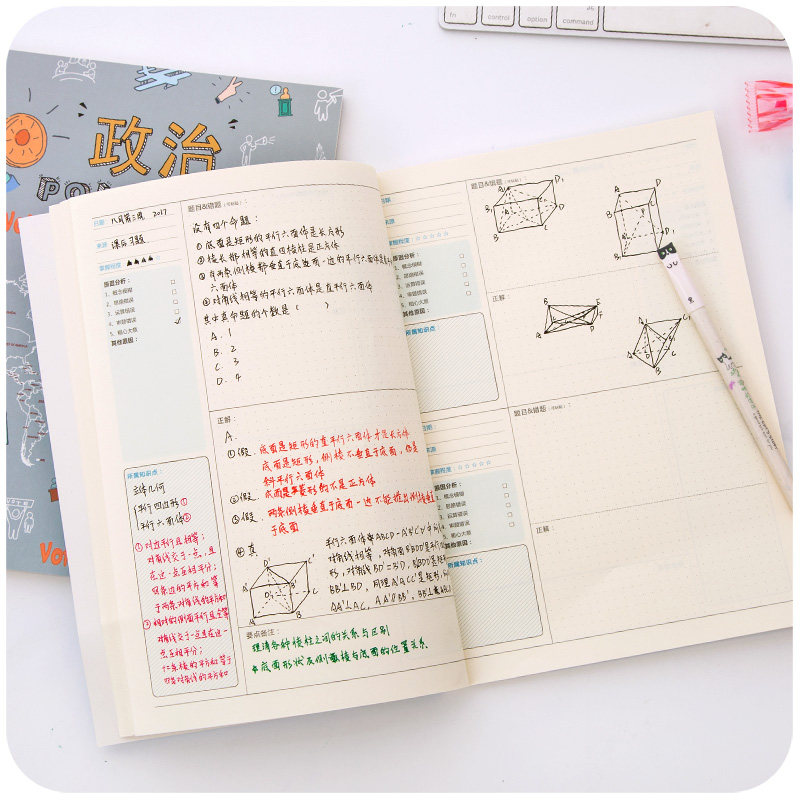 fn
control
option
command
政治
日期 八月第三周 2017
来源 课后习题
掌握程度
原因分析:
1、概念模糊
2、思路错误
3、运算错误
4、审题错误
5、粗心大意
其他原因:
题目&错题(可粘贴):
设有四个命题:
①底面是矩形的平行六面体是长方形
②棱长都相等的直四棱柱是正方体
③有两条侧棱都垂直于底面一边的平行六面体是
六面体
④对角线相等的平行六面体是直平行六面体
其中真命题的个数是( )
A. 1
B. 2
C. 3
D. 4
正解:
A.
①假. 底面是矩形的直平行六面体才是长方体
底面是矩形,侧棱不垂直于底面,
斜平行六面体
②假. 底面是菱形的不是正方体
③假. 两条侧棱垂直于底面一边不能推出侧棱
于底面
④真
平行六面体中ABCD-A'B'C'D'
对角线相等,对角面
形,对角线BD'=B'D,
BB'⊥BD,同理
AA'⊥AC, AA'∥BB',
所属知识点:
立体几何
平行四边形①
平行六面体②
①对边平行且相等;
对角线交于一点,且
在这一点互相平分;
四条边的平方和等
于两条对角线的平方和
②相对的侧面平行且全等
对角线交于一点且在这一
点互相平分;
十二条棱的平方和等于
四条对角线的平方和
要点备注:
理清各种棱柱之间的关系与区别
底面形状及侧棱与底面的位置关系
题目&错题(可粘贴):
来源
掌握程度
原因分析:
1、概念模糊
2、思路错误
3、运算错误
4、审题错误
5、粗心大意
其他原因:
正解:
所属知识点:
题目&错题(可粘贴):
日期:
来源
掌握程度
原因分析:
1、概念模糊
2、思路错误
3、运算错误
4、审题错误
5、粗心大意
其他原因:
正解:
所属知识点: